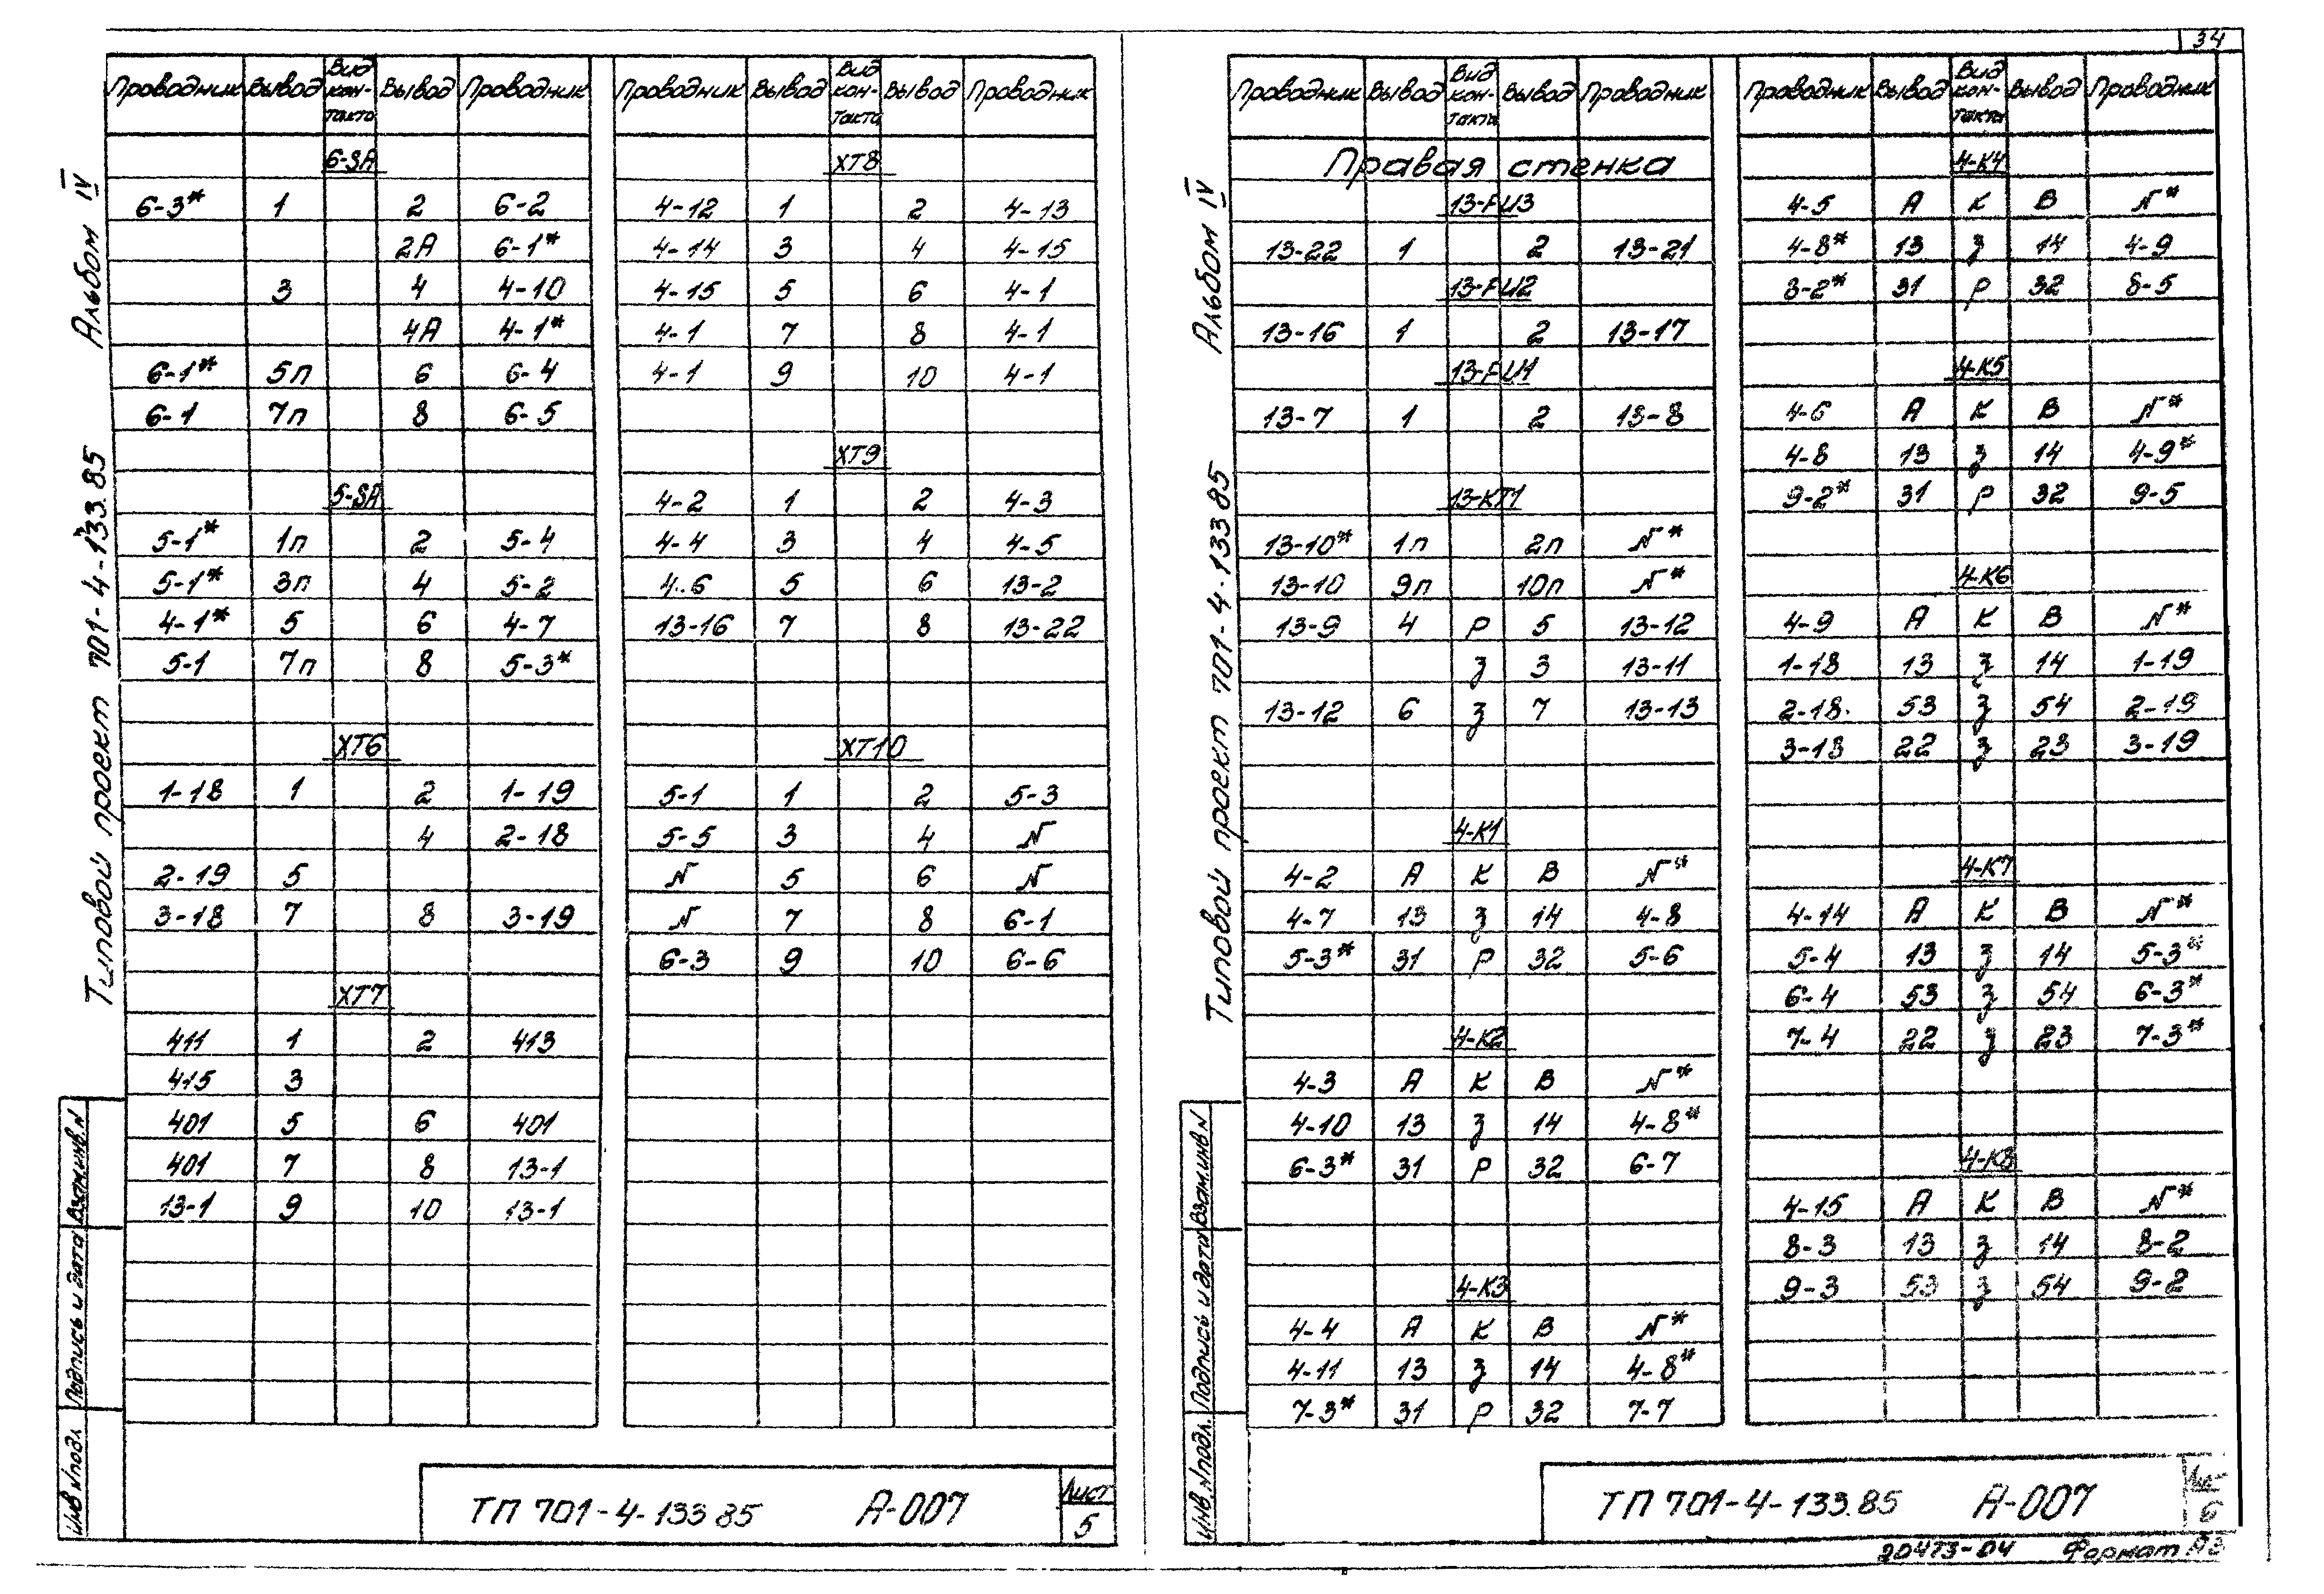 34
Альбом IV
Типовой проект 701-4-133.85
Проводник Вывод Вид контакта Вывод Проводник
6-SA
6-3* 1 2 6-2
2А 6-1*
3 4 4-10
4А 4-1*
6-1* 5п 6 6-4
6-1 7п 8 6-5
5-SA
5-1* 1п 2 5-4
5-1* 3п 4 5-2
4-1* 5 6 4-7
5-1 7п 8 5-3*
XT6
1-18 1 2 1-19
4 2-18
2-19 5
3-18 7 8 3-19
XT7
411 1 2 413
415 3
401 5 6 401
401 7 8 13-1
13-1 9 10 13-1
Проводник Вывод Вид контакта Вывод Проводник
XT8
4-12 1 2 4-13
4-14 3 4 4-15
4-15 5 6 4-1
4-1 7 8 4-1
4-1 9 10 4-1
XT9
4-2 1 2 4-3
4-4 3 4 4-5
4-6 5 6 13-2
13-16 7 8 13-22
XT10
5-1 1 2 5-3
5-5 3 4 N
N 5 6 N
N 7 8 6-1
6-3 9 10 6-6
Инв.N подл. Подпись и дата Взам.инв.N
ТП 701-4-133.85 А-007
Лист
5
Альбом IV
Типовой проект 701-4-133.85
Проводник Вывод Вид контакта Вывод Проводник
Правая стенка
13-FU3
13-22 1 2 13-21
13-FU2
13-16 1 2 13-17
13-FU1
13-7 1 2 13-8
13-KT1
13-10* 1п 2п N*
13-10 9п 10п N*
13-9 4 р 5 13-12
з 3 13-11
13-12 6 з 7 13-13
4-K1
4-2 А К В N*
4-7 13 з 14 4-8
5-3* 31 р 32 5-6
4-K2
4-3 А К В N*
4-10 13 з 14 4-8*
6-3* 31 р 32 6-7
4-K3
4-4 А К В N*
4-11 13 з 14 4-8*
7-3* 31 р 32 7-7
Проводник Вывод Вид контакта Вывод Проводник
4-K4
4-5 А К В N*
4-8* 13 з 14 4-9
8-2* 31 р 32 8-5
4-K5
4-6 А К В N*
4-8 13 з 14 4-9*
9-2* 31 р 32 9-5
4-K6
4-9 А К В N*
1-18 13 з 14 1-19
2-18 53 з 54 2-19
3-18 22 з 23 3-19
4-K7
4-14 А К В N*
5-4 13 з 14 5-3*
6-4 53 з 54 6-3*
7-4 22 з 23 7-3*
4-K8
4-15 А К В N*
8-3 13 з 14 8-2
9-3 53 з 54 9-2
Инв.N подл. Подпись и дата Взам.инв.N
ТП 701-4-133.85 А-007
6
20473-04 Формат А3